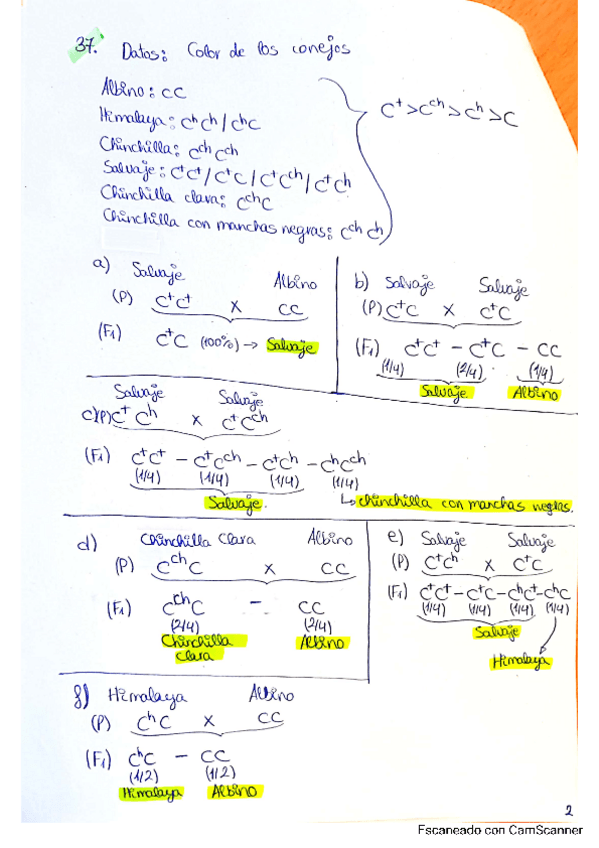 37. Datos: Color de los conejos
Albino: cc
Himalaya: cʰcʰ / cʰc
Chinchilla: cᶜʰcᶜʰ
Salvaje: c⁺c⁺ / c⁺c / c⁺cᶜʰ / c⁺cʰ
Chinchilla clara: cᶜʰc
Chinchilla con manchas negras: cᶜʰcʰ
c⁺>cᶜʰ>cʰ>c
a) Salvaje Albino
(P) c⁺c⁺ x cc
(F₁) c⁺c (100%) → Salvaje
b) Salvaje Salvaje
(P) c⁺c x c⁺c
(F₁) c⁺c⁺ - c⁺c - cc
(1/4) (2/4) (1/4)
Salvaje Albino
Salvaje Salvaje
c)(P) c⁺cʰ x c⁺cᶜʰ
(F₁) c⁺c⁺ - c⁺cᶜʰ - c⁺cʰ - cʰcᶜʰ
(1/4) (1/4) (1/4) (1/4)
Salvaje. ↳ chinchilla con manchas negras.
d) Chinchilla Clara Albino
(P) cᶜʰc x cc
(F₁) cᶜʰc - cc
(2/4) (2/4)
Chinchilla Albino
clara
e) Salvaje Salvaje
(P) c⁺cʰ x c⁺c
(F₁) c⁺c⁺ - c⁺c - cʰc⁺ - cʰc
(1/4) (1/4) (1/4) (1/4)
Salvaje
Himalaya
f) Himalaya Albino
(P) cʰc x cc
(F₁) cʰc - cc
(1/2) (1/2)
Himalaya Albino
2
Escaneado con CamScanner